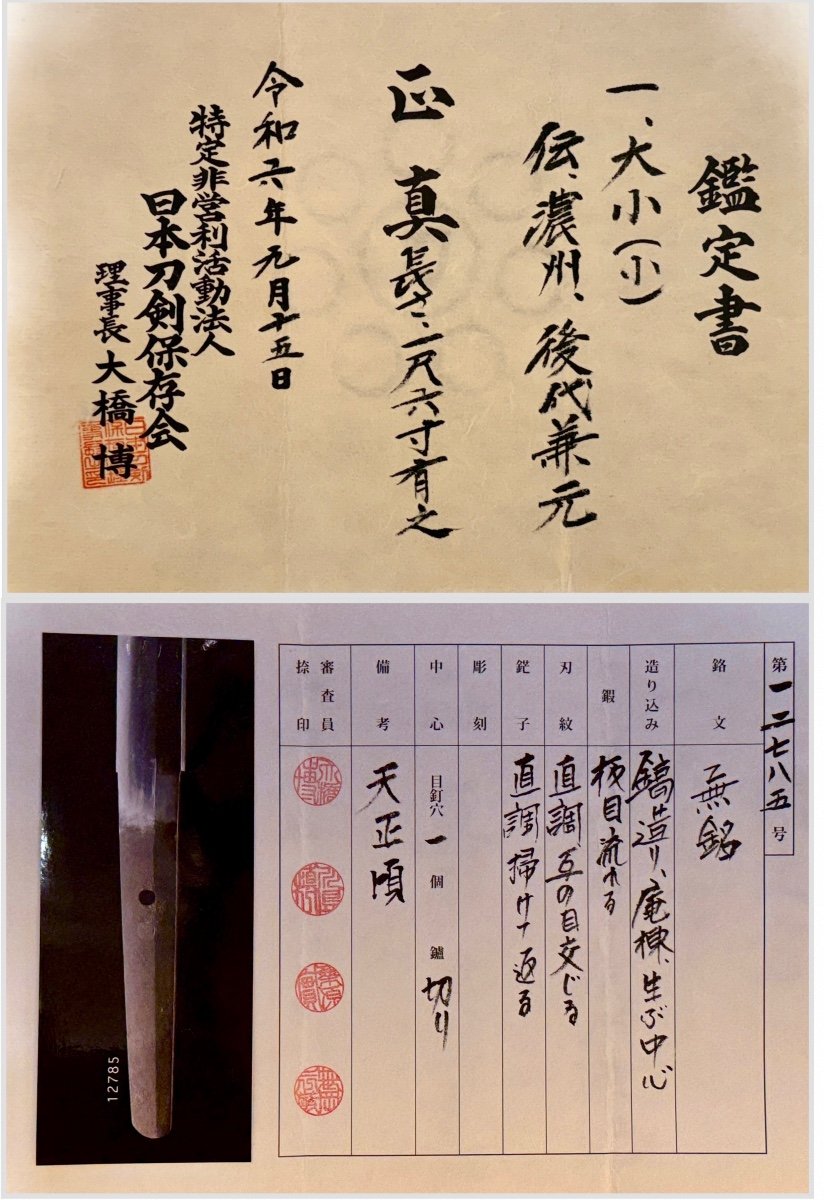 鑑定書
一、大小(小)
伝、濃州、後代兼元
正真 長さ、一尺六寸有之
令和六年元月十五日
特定非営利活動法人
日本刀剣保存会
理事長 大橋 博
第一二七八五号
銘文
無銘
造り込み
鎬造り、庵棟、生ぶ中心
鍛
板目流れる
刃紋
直調互の目交じる
鋩子
直調掃けて返る
彫刻
中心
目釘穴 一 個 鑢 切り
備考
天正頃
審査員
捺印
12785